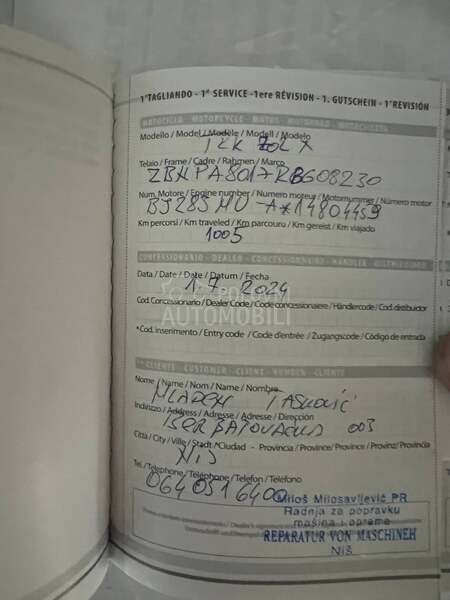 1°TAGLIANDO - 1st SERVICE -1ere RÉVISION - 1. GUTSCHEIN - 1°REVISIÓN
MOTOCICLO MOTORCYCLE MOTOS MOTORRAD MOTOCICLETA
Modello / Model / Modèle / Modell / Modelo
TRK 702 X
Telaio / Frame / Cadre / Rahmen / Marco
ZBNPA8017RBG08230
Num. Motore / Engine number / Numero moteur / Motornummer / Número motor
BJ285MU-A*14804459
Km percorsi / Km traveled / Km parcouru / Km gereist / Km viajado
1005
CONCESSIONARIO - DEALER - CONCESSIONNAIRE - HÄNDLER
Data / Date / Date / Datum / Fecha
1.7.2024
POLOVNI AUTOMOBILI
Cod. Concessionario / Dealer Code / Code concessionaere / Händlercode / Cod. distribuidor
*Cod. inserimento / Entry code / Code d'entrée / Zugangscode / Código de entrada
** CLIENTE - CUSTOMER - CLIENT - KUNDEN - CLIENTE
Nome / Name / Nom / Name / Nombre
MLADEN TASKOVIĆ
Indirizzo / Address / Adresse / Adresse / Dirección
003
Città / City / Ville / Stadt / Ciudad - Provincia / Province/ Province / Provinz/ Provincia
NIŠ
Tel. / Telephone / Téléphone / Telefon / Teléfono
0640516400
Miloš Milosavljević PR
Radnja za popravku
mašina i opreme
REPARATUR VON MASCHINEH
Niš